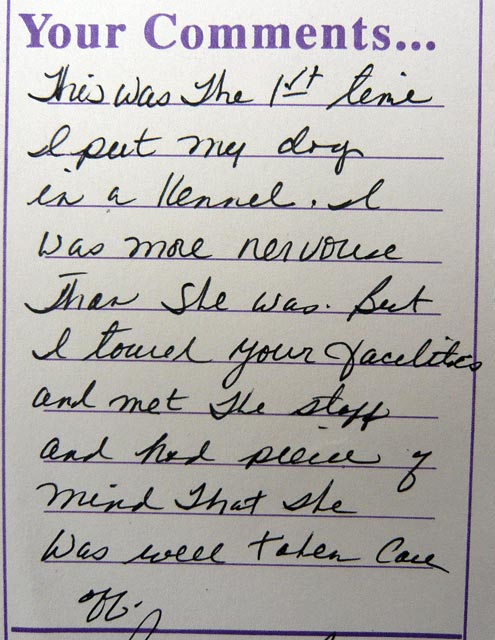 Your Comments...
This was the 1st time
I put my dog
in a Kennel. I
was more nervouse
Than She was. But
I toured your facilities
and met the staff
and had peice of
mind That she
was well taken Care
of.